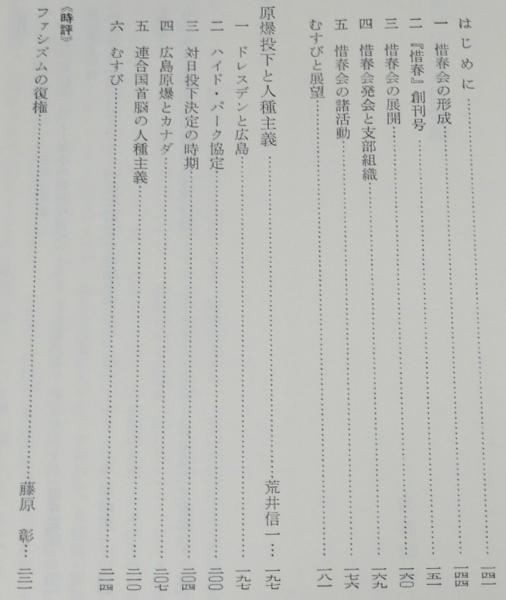 はじめに……一四一
一 惜春会の形成……一四四
二 『惜春』創刊号……一五一
三 惜春会の展開……一六〇
四 惜春会発会と支部組織……一六九
五 惜春会の諸活動……一七六
むすびと展望……一八一
原爆投下と人種主義……荒井信一…一九七
一 ドレスデンと広島……一九七
二 ハイド・パーク協定……二〇〇
三 対日投下決定の時期……二〇四
四 広島原爆とカナダ……二〇七
五 連合国首脳の人種主義……二一〇
六 むすび……二一四
《時評》
ファシズムの復権……藤原 彰…二三一